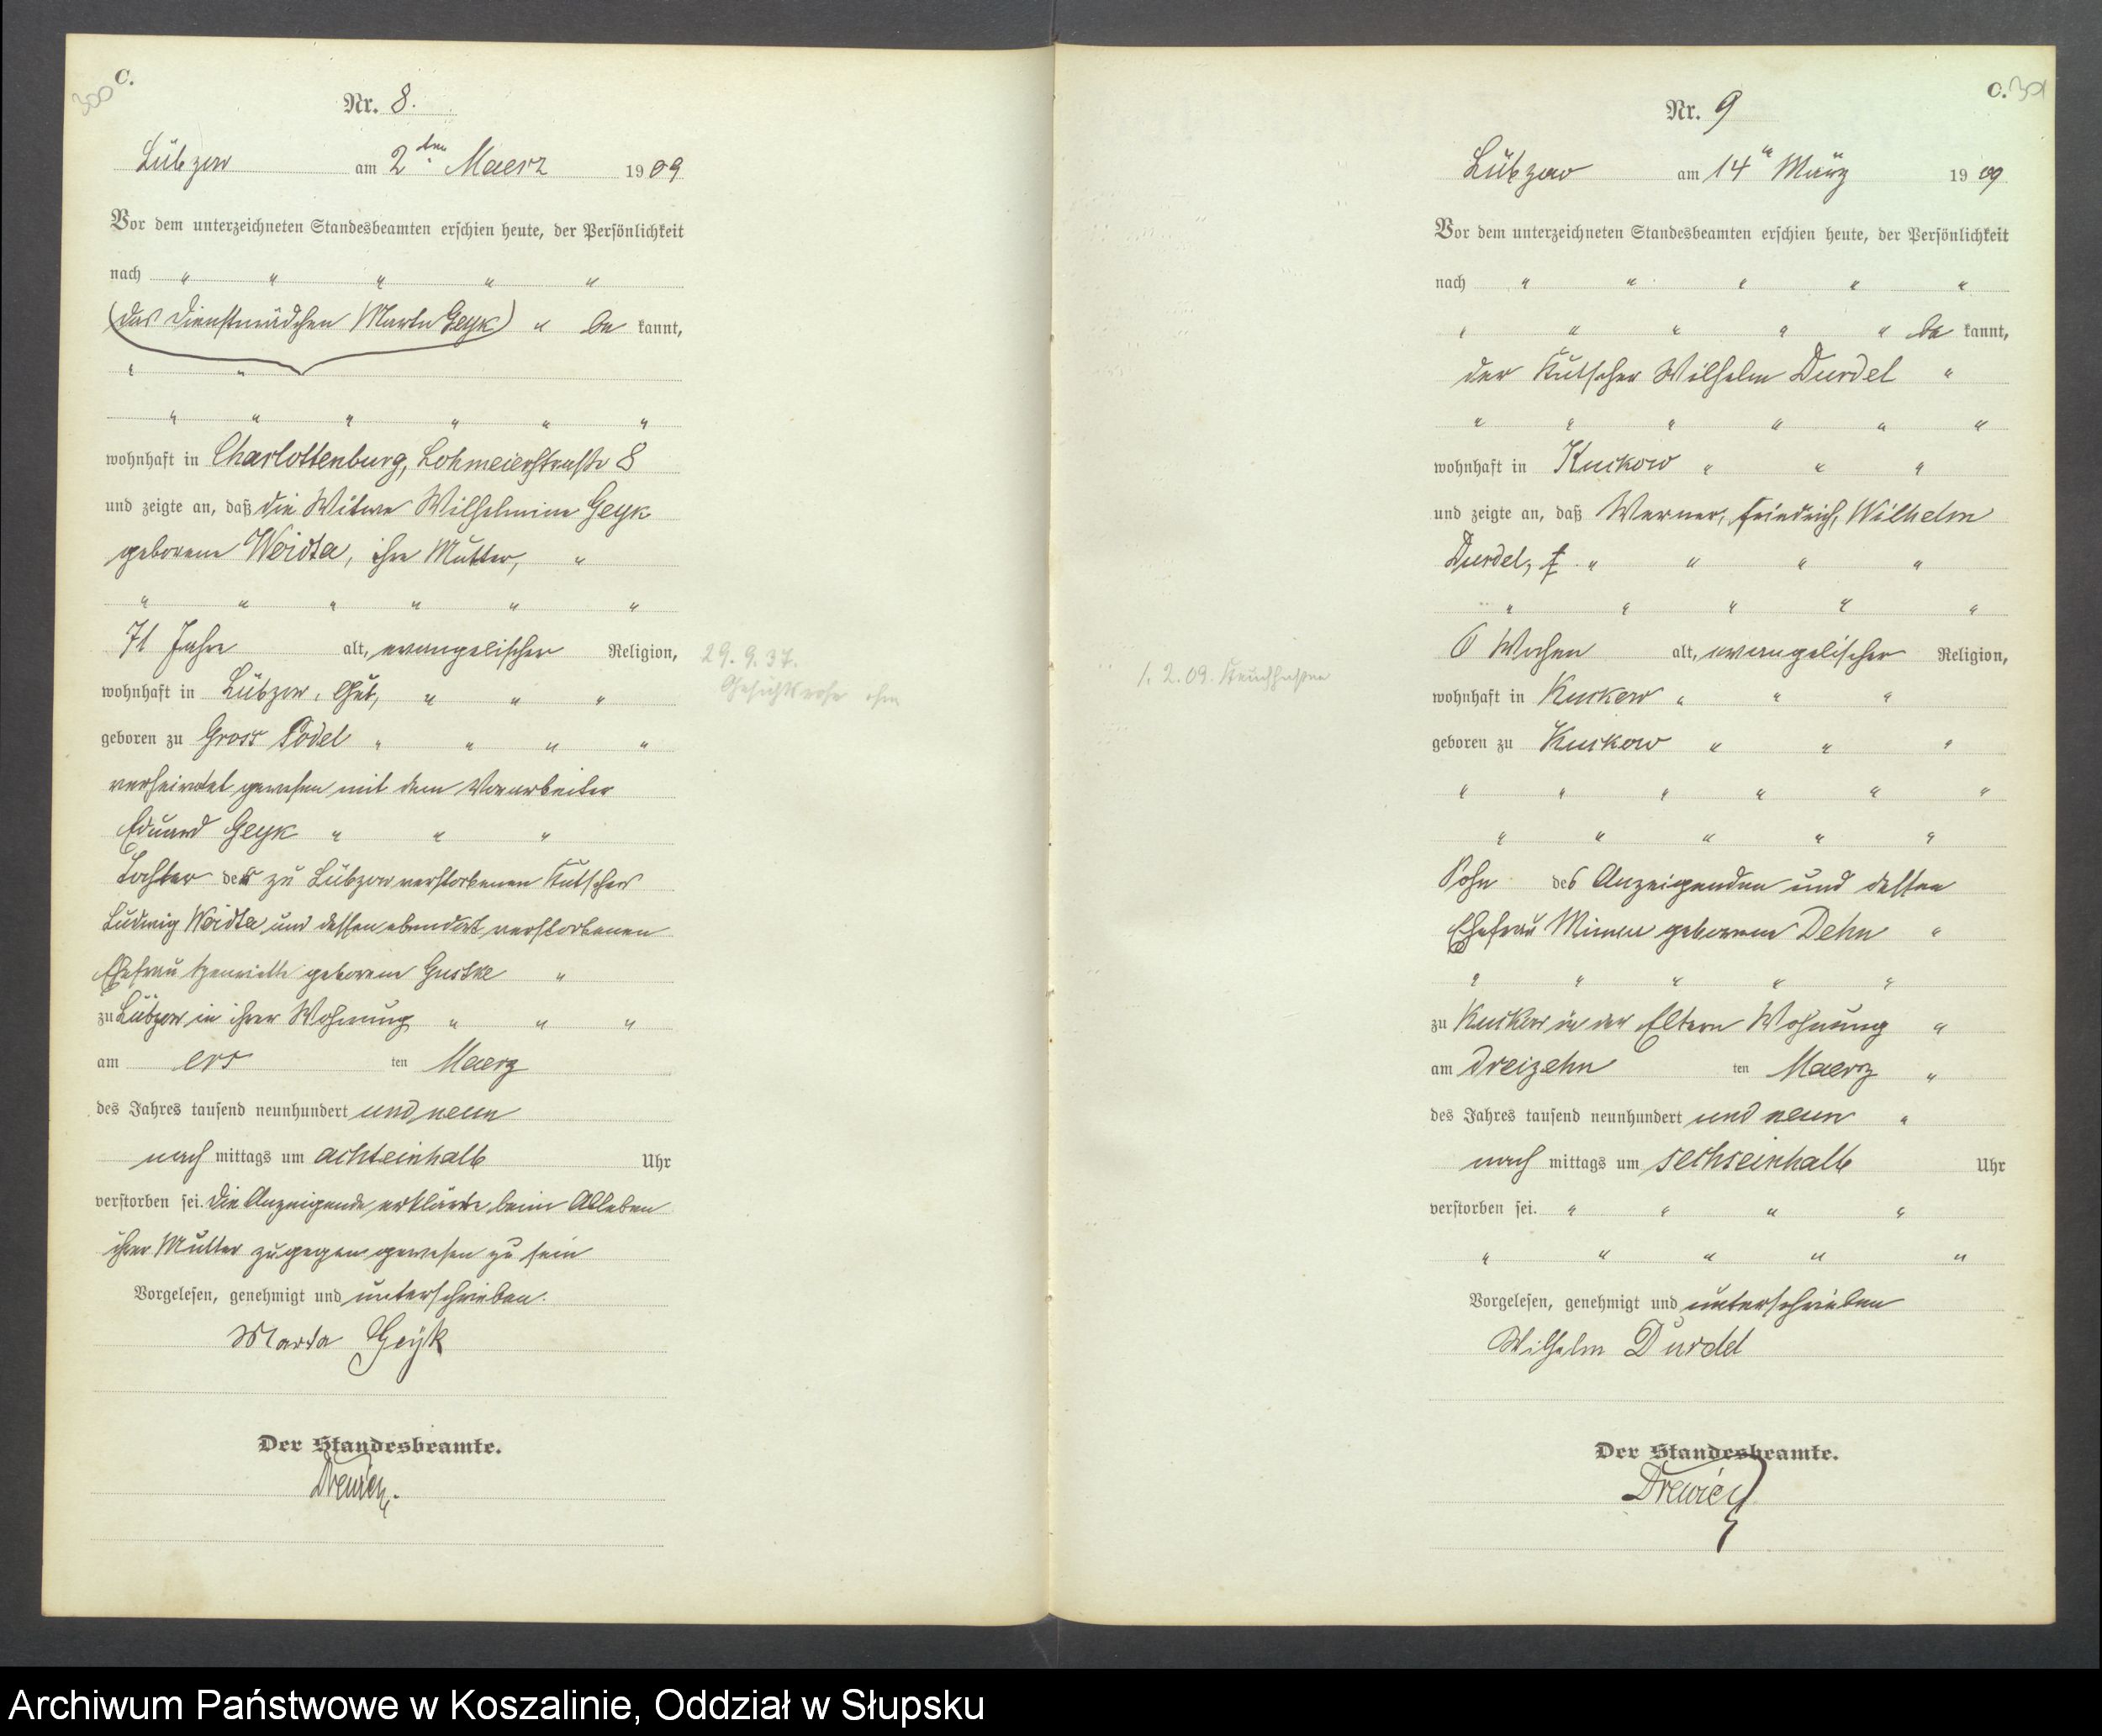 C.
300
Nr. 8.
Lübzow am 2ten Maerz 1909
Vor dem unterzeichneten Standesbeamten erschien heute, der Persönlichkeit
nach " " " " "
(das Dienstmädchen Marta Geyk) " be kannt,
" "
" " " " " "
wohnhaft in Charlottenburg, Lohmeierstraße 8
und zeigte an, daß die Witwe Wilhelmine Geyk
geborene Woidta, ihre Mutter, "
" " " " " "
71 Jahre alt, evangelischer Religion,
29. 9. 37.
wohnhaft in Lübzow, Gut, " " "
Gesichtsrose
geboren zu Gross Podel " " " "
verheiratet gewesen mit dem Vorarbeiter
Eduard Geyk " " "
Tochter des zu Lübzow verstorbenen Kutschers
Ludwig Woidta und dessen ebendort verstorbenen
Ehefrau Henriette geborene Guske "
zu Lübzow in ihrer Wohnung " " "
am ers ten Maerz
des Jahres tausend neunhundert und neun
nach mittags um achteinhalb Uhr
verstorben sei. Die Anzeigende erklärte, beim Ableben
ihrer Mutter zugegen gewesen zu sein
Vorgelesen, genehmigt und unterschrieben.
Marta Geyk
Der Standesbeamte.
Drewiez.
C.
301
Nr. 9
Lübzow am 14n März 1909
Vor dem unterzeichneten Standesbeamten erschien heute, der Persönlichkeit
nach " " " " "
" " " " " be kannt,
der Kutscher Wilhelm Durdel "
" " " " " "
wohnhaft in Kuskow " " "
und zeigte an, daß Werner, Friedrich, Wilhelm
Durdel, " " " "
" " " " "
6 Wochen alt, evangelischer Religion,
1. 2. 09. Keuchhusten
wohnhaft in Kuskow " " "
geboren zu Kuskow " " "
" " " " " "
" " " " "
Sohn des Anzeigenden und dessen
Ehefrau Minna geborene Dehn "
" " " " "
zu Kuskow in der Eltern Wohnung "
am dreizehn ten Maerz "
des Jahres tausend neunhundert und neun "
nach mittags um sechseinhalb Uhr
verstorben sei. " " " "
" " " " "
Vorgelesen, genehmigt und unterschrieben
Wilhelm Durdel
Der Standesbeamte.
Drewiez
Archiwum Państwowe w Koszalinie, Oddział w Słupsku